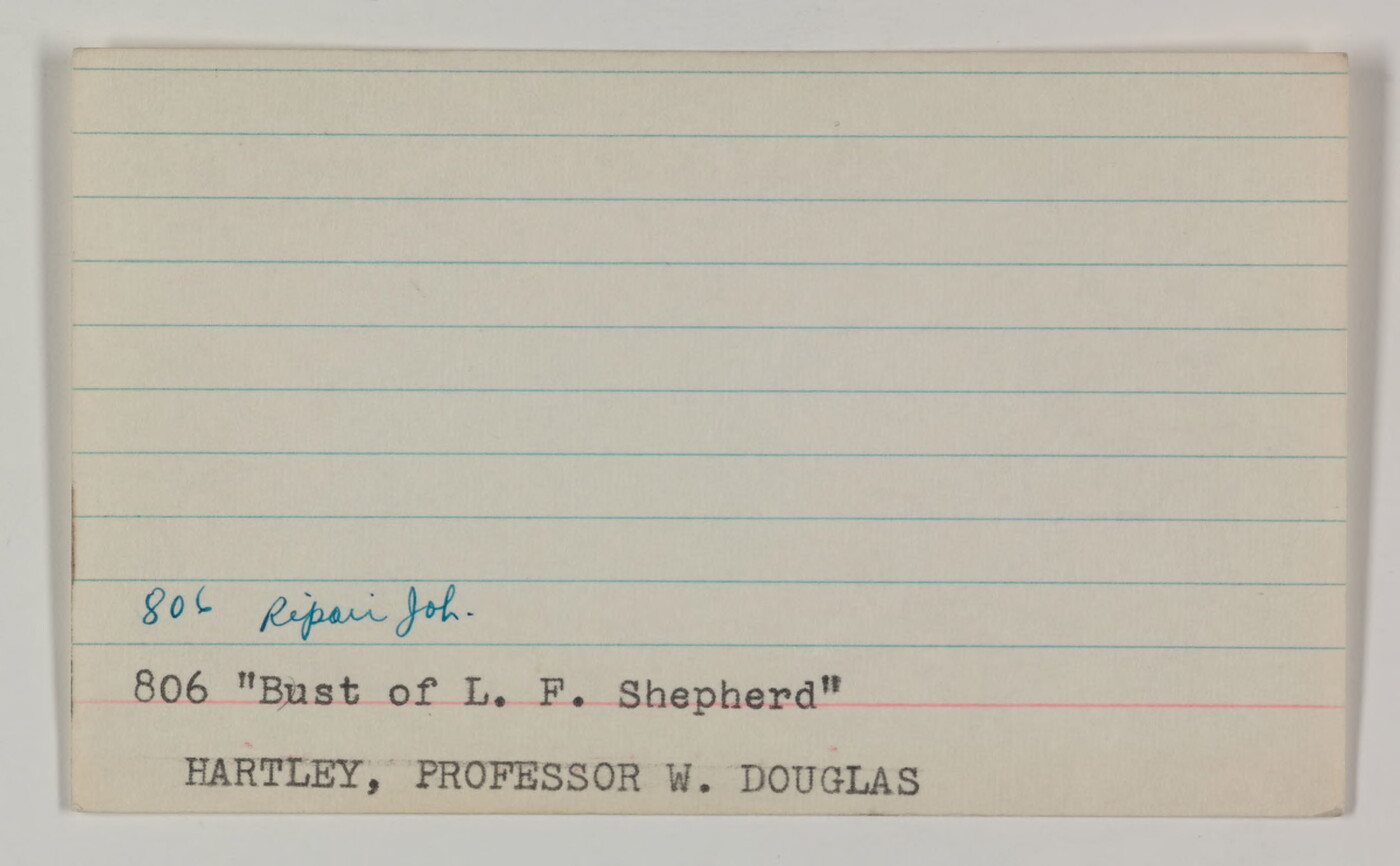 806 Repair Job.
806 "Bust of L. F. Shepherd"
HARTLEY, PROFESSOR W. DOUGLAS